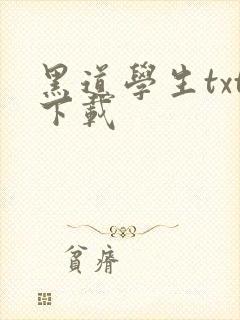 黑道學生txt
下載
貧瘠